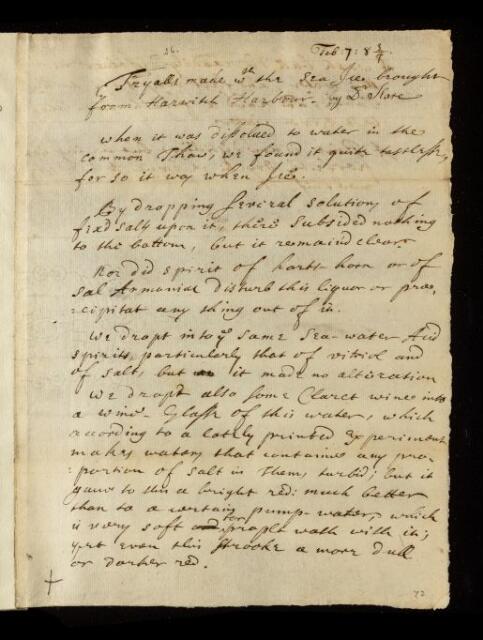 26.
Feb 7: 8¾
Tryalls made wth the Sea Jce brought
from Harwich Harbour. by Dr Slare
when it was dissolued to water in the
common Thaw, we found it quite tastlesse,
for so it was when Jce.
By dropping severall solutions of
fixd salts upon it, there subsided nothing
to the bottom, but it remaind clear.
Nor did spirit of harts-horn or of
sal Armaniac disturb this liquor or præ
:cipitat any thing out of it.
We dropt into ye same sea-water Acid
spirits, particularly that of vitriol and
of salt, but it made no alteration
We dropt also some Claret wine into
a wine Glasse of this water, which
according to a lately printed Experiment
makes waters that containe any pro:
:portion of salt in them, turbid; but it
gave to this a bright red: much better
than to a certain pump-water, which
is very soft for people wash with it;
yet even this strooke a more dull
or darker red.